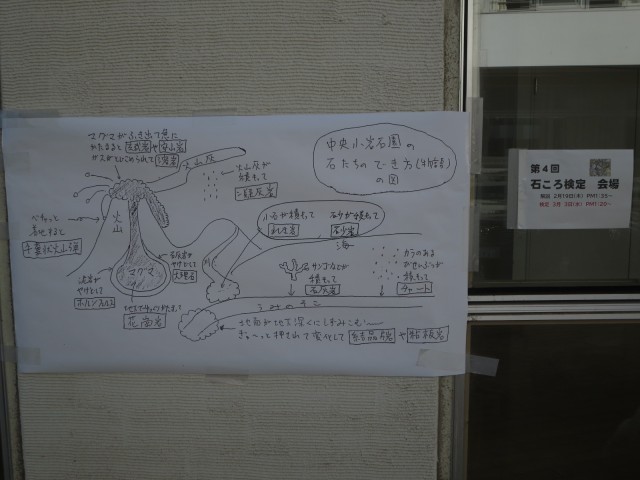 中央小岩石園の
石たちのでき方(生い立ち)
の図
マグマがふき出て急に
かたまると玄武岩や安山岩
ガスがとじこめられて溶岩
火山灰
火山灰が
積もって
凝灰岩
火山
ベちゃっと
着地すると
マグマ
石灰岩が
やけどして
大理石
泥岩が
やけどして
ホルンフェルス
地下でゆっくりかたまって
花崗岩
小石が積もって
れき岩
砂が積もって
砂岩
海
サンゴなどが
積もって
石灰岩
カラのある
積もって
チャート
うみのそこ
地面が地下深くにしずみこむ〜
ぎゅ〜っと押されて変化して結晶片岩や粘板岩
第4回
石ころ検定 会場